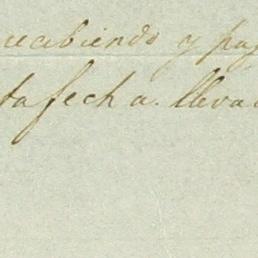 recibiendo y pag
ta fecha. lleva